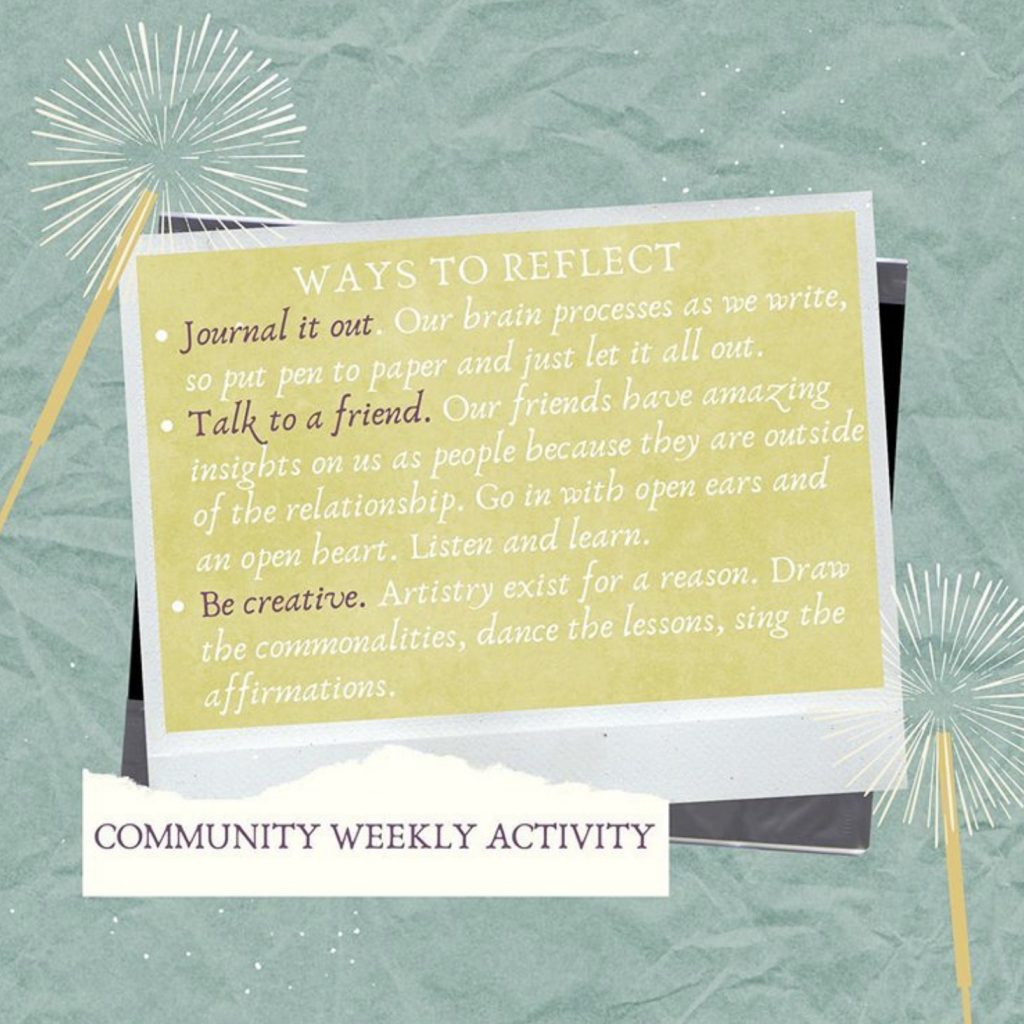 WAYS TO REFLECT
• Journal it out. Our brain processes as we write,
so put pen to paper and just let it all out.
• Talk to a friend. Our friends have amazing
insights on us as people because they are outside
of the relationship. Go in with open ears and
an open heart. Listen and learn.
• Be creative. Artistry exist for a reason. Draw
the commonalities, dance the lessons, sing the
affirmations.
COMMUNITY WEEKLY ACTIVITY